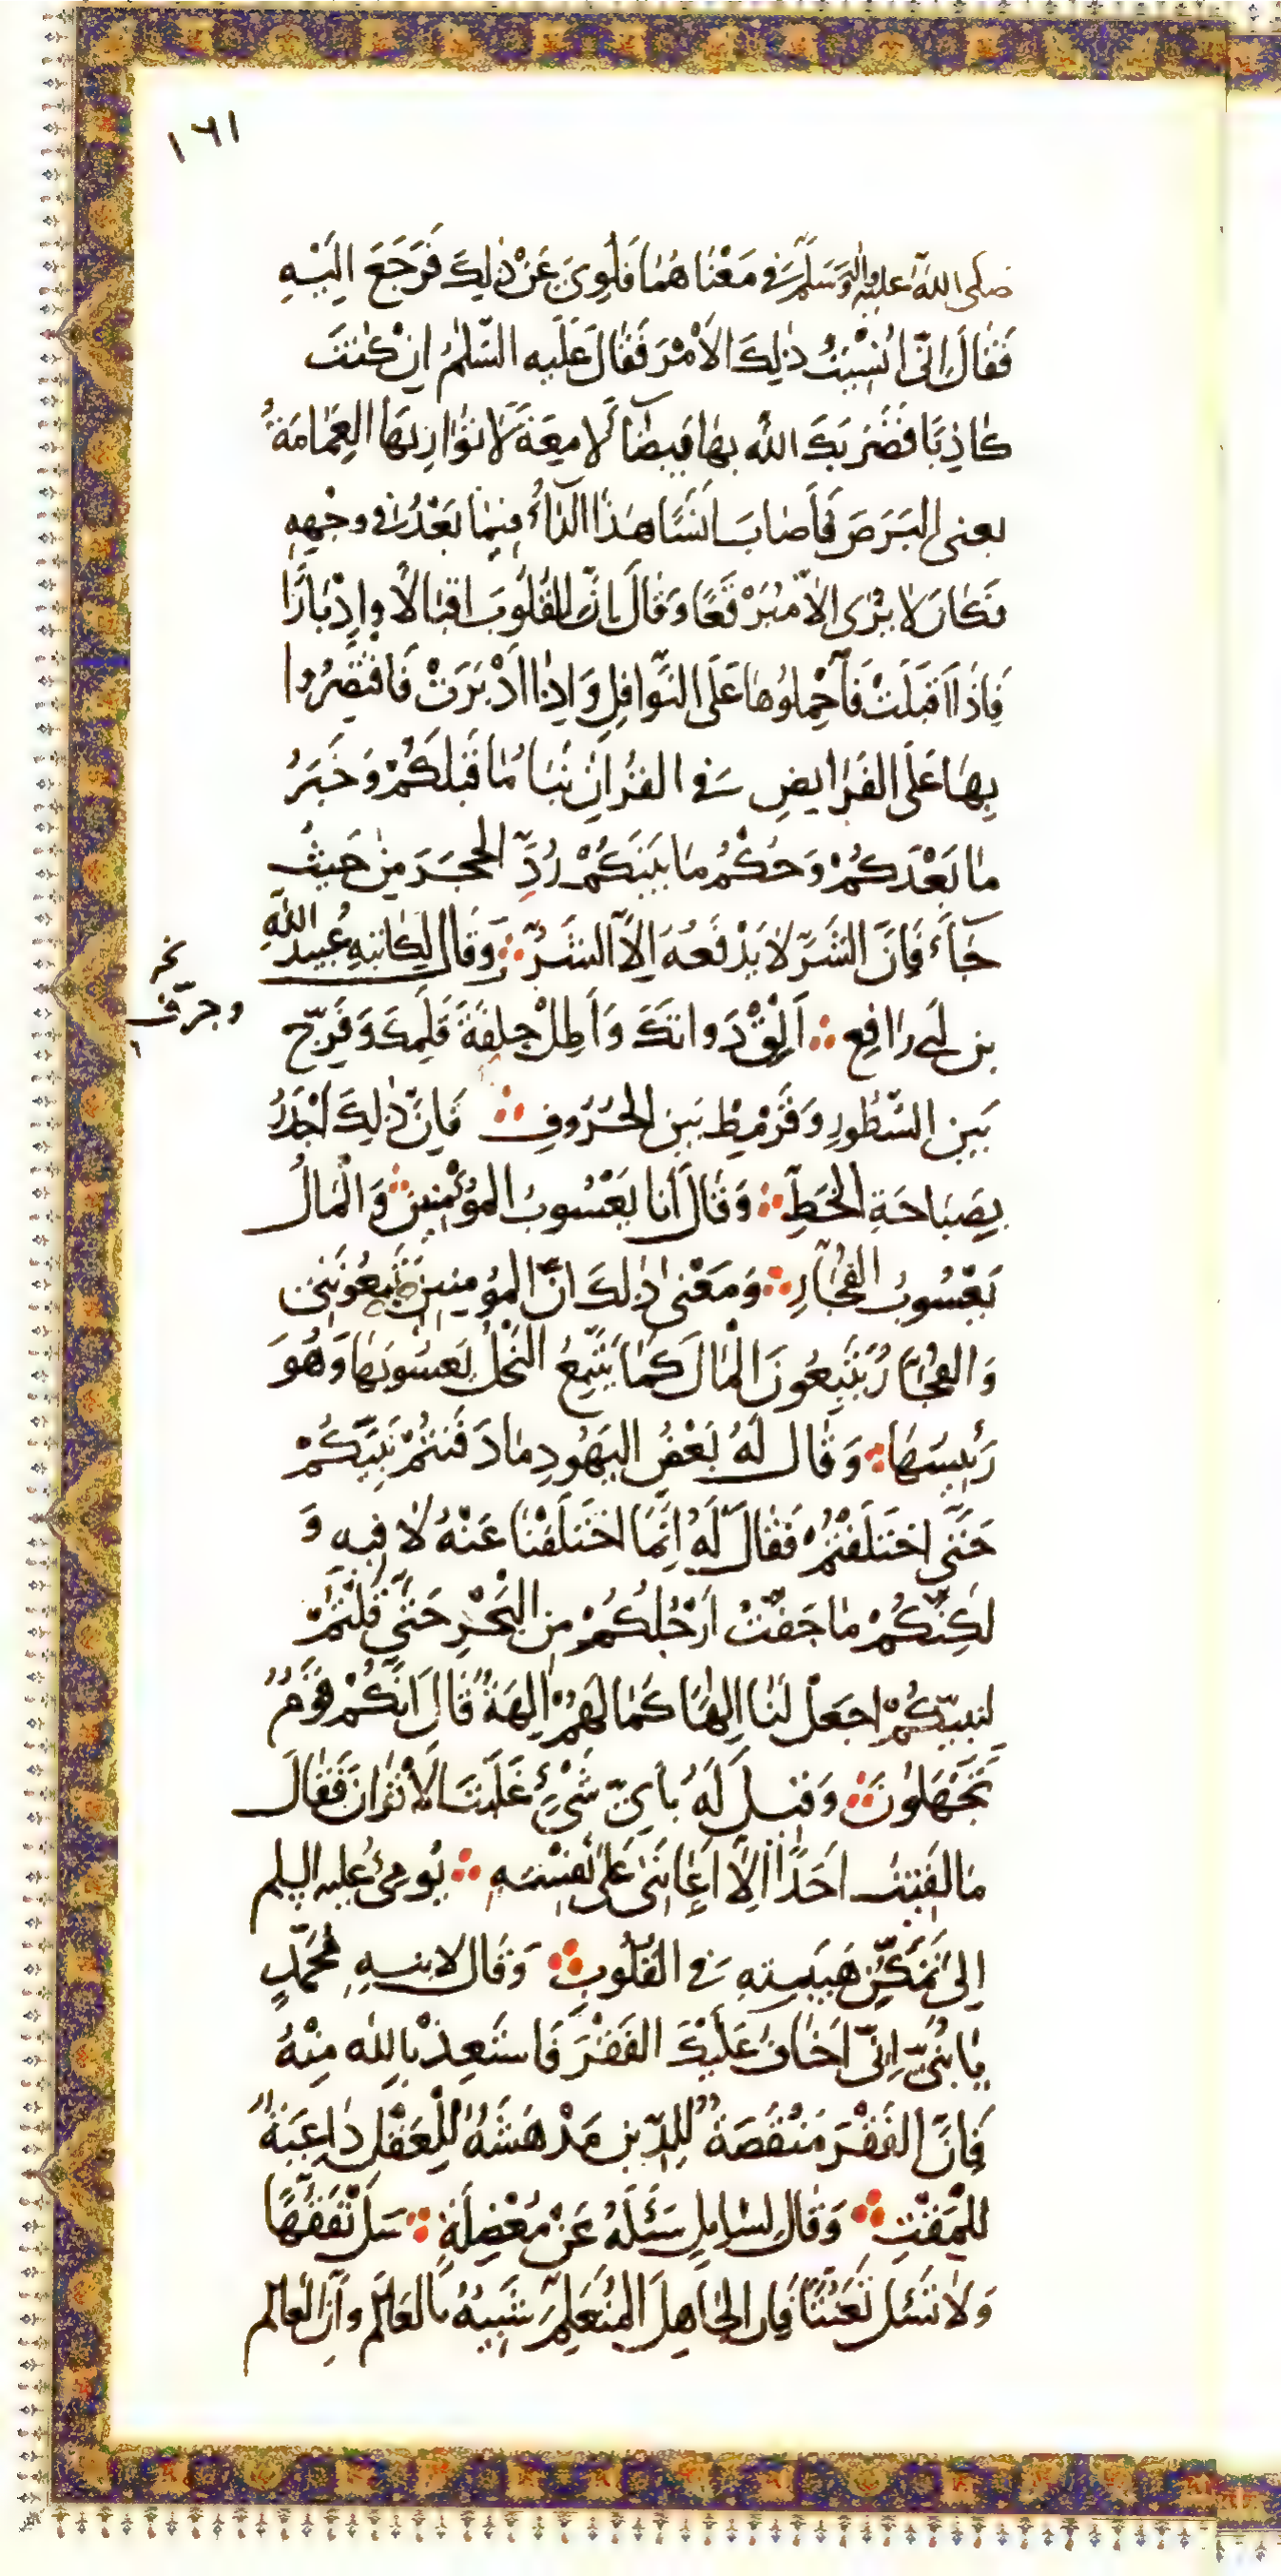 ١٦١
صلى الله عليه وآله وسلم في مَعْناهُما فَلَوى عَنْ ذٰلِكَ فَرَجَعَ اِلَيْهِ
فَقٰالَ اِنّى اُنْسِيْتُ ذٰلِكَ الاَمْرَ فَقٰالَ عَلَيه السَّلٰمُ اِنْ كُنْتَ
كٰاذِبًا فَضَرَبَكَ اللهُ بِهٰا بَيضٰآءَ لامِعَةً لاٰ تُوٰارِيهَا العِمٰامَةُ
يعنى البَرَصَ فَاَصٰابَ اَنَسًا هٰذَا الدّٰآءُ فيمٰا بَعْدُ فى وجْهِهِ
فكٰانَ لاٰ يُرٰى اِلاّٰ مُبَرْقَعًا وَقٰالَ اِنَّ لِلقُلُوبِ اقبٰالاً وَاِدْبٰارًا
فَاِذٰا اَقْبَلَتْ فَاَحْمِلُوهٰا عَلَى النَّوٰافِلِ وَاِذٰا اَدْبَرَتْ فَاقْتَصِرُوا
بِهٰا عَلَى الفَرٰايضِ فى القُرْاٰنِ نَبَأُ مٰا قَبْلَكُمْ وَخَبَرُ
مٰا بَعْدَكُمْ وَحُكْمُ مٰا بَيْنَكُمْ رُدُّ الحَجَرَ مِنْ حَيثُ
جٰآءَ فَاِنَّ الشَّرَّ لاٰ يَدْفَعُهُ اِلاَّ الشَّرُّ وَقٰالَ لِكٰاتِبِهِ عُبَيدِ اللهِ
بن اَبى رٰافِعٍ اَلِقْ دَوٰاتَكَ وَاَطِلْ جِلفَةَ قَلَمِكَ وَفَرِّجْ
بَينَ السُّطُورِ وَقَرْمِطْ بَينَ الحُرُوفِ فَاِنَّ ذٰلِكَ اَجْدَرُ
بِصَبٰاحَةِ الخَطِّ وَقٰالَ اَنَا يَعْسُوبُ المُؤْمِنينَ وَالْمٰالُ
يَعْسُوبُ الفُجّٰارِ وَمَعْنى ذٰلِكَ اَنَّ المُؤْمِنينَ يَتَّبِعُونَنى
وَالفُجّٰارُ يَتَّبِعُونَ الْمٰالَ كَمٰا يَتَّبِعُ النَّحْلُ يَعْسُوبَهٰا وَهُوَ
رَئيسَهٰا وَقٰالَ لَهُ بَعْضُ اليَهُودِ مٰا دَفَنْتُمْ نَبِيَّكُمْ
حَتَّى اخْتَلَفْتُمْ فَقٰالَ لَهُ اِنَّمٰا اخْتَلَفْنٰا عَنْهُ لاٰ فيهِ وَ
لٰكِنَّكُمْ مٰا جَفَّتْ اَرْجُلُكُمْ مِنَ البَحْرِ حَتَّى قُلْتُمْ
لِنَبِيِّكُمْ اجعَلْ لَنٰا اِلٰهًا كَمٰا لَهُمْ اٰلِهَةٌ قٰالَ اِنَّكُمْ قَوْمٌ
تَجْهَلُونَ وَقيلَ لَهُ بِاَىِّ شَىْءٍ غَلَبْتَ الاَقْرٰانَ فَقٰالَ
مٰا لَقيتُ اَحَدًا اِلاّٰ اَعٰانَنى عَلٰى نَفْسِهِ يُومِئُ عليه السلم
اِلىٰ تَمَكُّنِ هَيبَتِهِ فى القُلُوبِ وَقٰالَ لابنِهِ مُحَمَّدٍ
يٰا بُنَىَّ اِنّى اَخٰافُ عَلَيْكَ الفَقْرَ فَاستَعِذْ بِاللهِ مِنْهُ
فَاِنَّ الفَقْرَ مَنْقَصَةٌ لِلدّينِ مَدْهَشَةٌ لِلْعَقْلِ دٰاعِيَةٌ
لِلْمَقْتِ وَقٰالَ لِسٰايِلٍ سَئَلَهُ عَنْ مُعْضِلَةٍ سَلْ تَفَقُّهًا
وَلاٰ تَسْئَلْ تَعَنُّتًا فَاِنَّ الجٰاهِلَ المُتَعَلِّمَ شَبيهٌ بِالعٰالِمِ وَاِنَّ العٰالِمَ